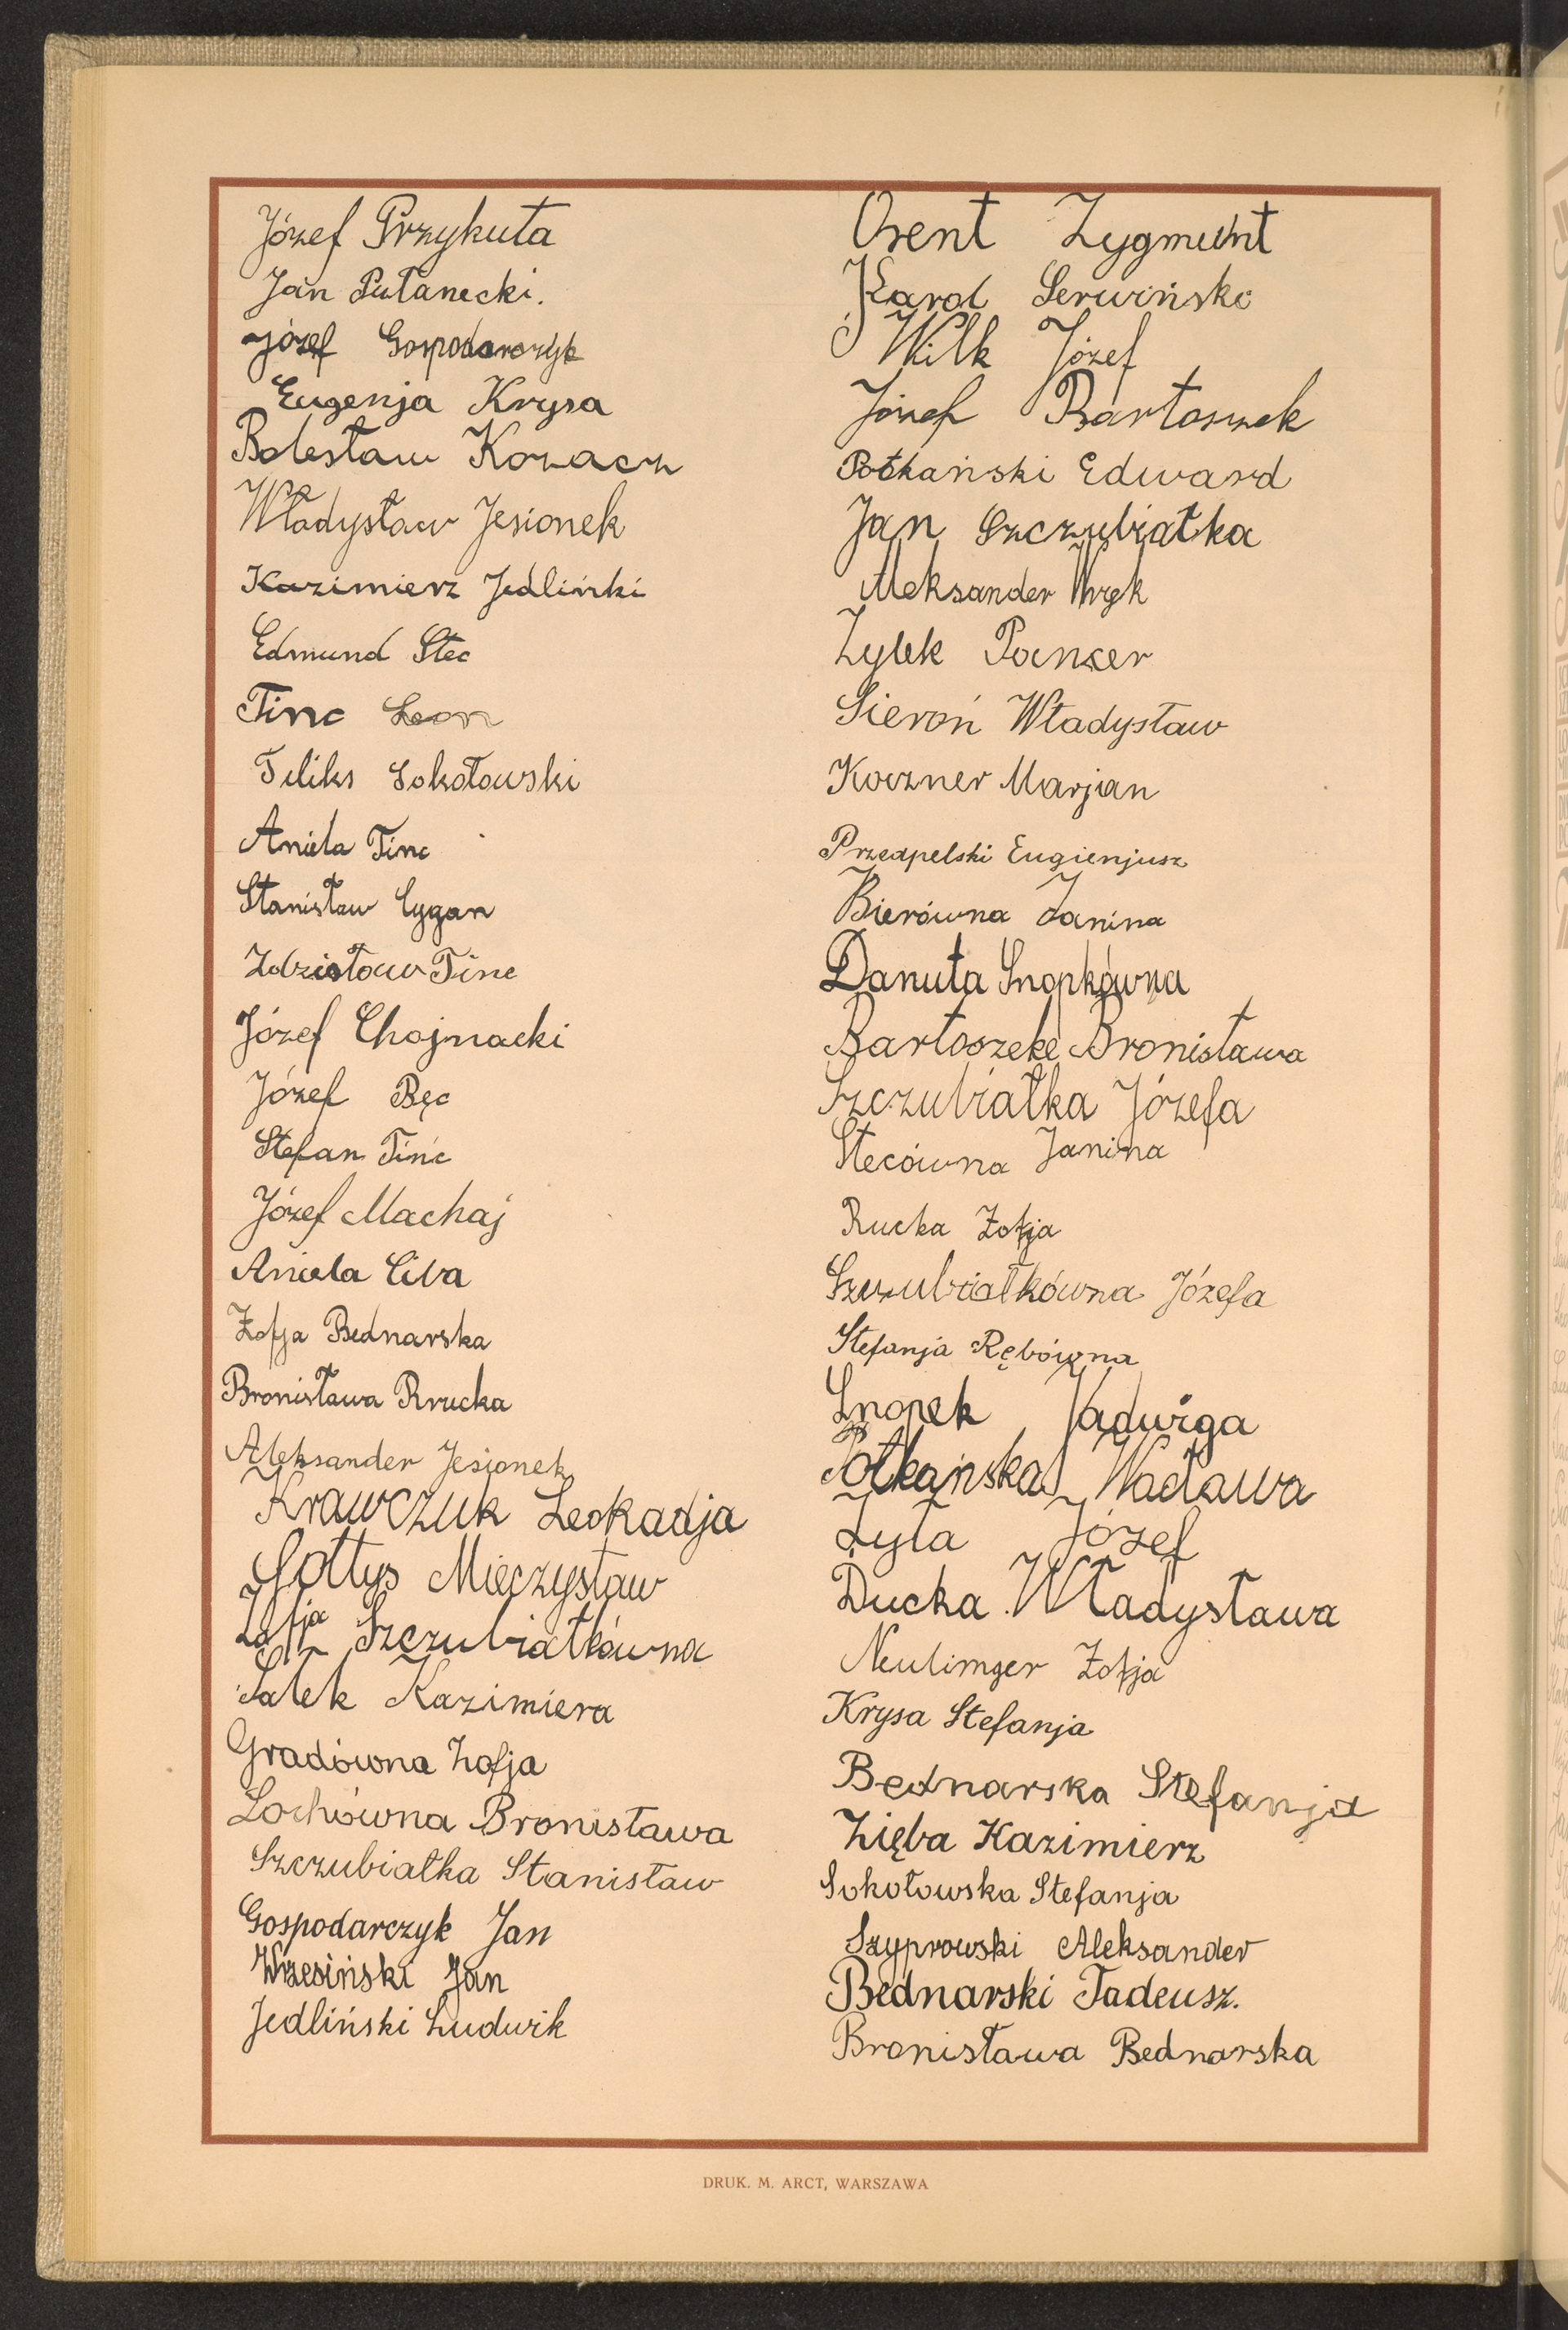 Józef Przykuta
Jan Pułanecki.
Józef Gospodarczyk
Eugenja Krysa
Bolesław Kozacz
Władysław Jesionek
Kazimierz Jedliński
Edmund Stec
Tinc Leon
Feliks Sokołowski
Aniela Tinc
Stanisław Cygan
Zdzisław Tinc
Józef Chojnacki
Józef Bęc
Stefan Tinc
Józef Machaj
Aniela Ciba
Zofja Bednarska
Bronisława Rrucka
Aleksander Jesionek
Krawczuk Leokadja
Sołtys Mieczysław
Zofja Szczubiałkówna
Sałek Kazimiera
Gradówna Zofja
Lochówna Bronisława
Szczubiałka Stanisław
Gospodarczyk Jan
Wrzesiński Jan
Jedliński Ludwik
Orent Zygmunt
Karol Serwiński
Wilk Józef
Józef Bartoszek
Potkański Edward
Jan Szczubiałka
Aleksander Wręk
Zylek Pancer
Sieroń Władysław
Koczner Marjan
Przedpelski Eugienjusz
Bierówna Janina
Danuta Snopkówna
Bartoszeke Bronisława
Szczubiałka Józefa
Stecówna Janina
Rucka Zofja
Szczubiałkówna Józefa
Stefanja Rębówna
Snopek Jadwiga
Potkańska Wacława
Żyła Józef
Ducka Władysława
Neulinger Zofja
Krysa Stefanja
Bednarska Stefanja
Zięba Kazimierz
Sokołowska Stefanja
Szyprowski Aleksander
Bednarski Tadeusz.
Bronisława Bednarska
DRUK. M. ARCT, WARSZAWA